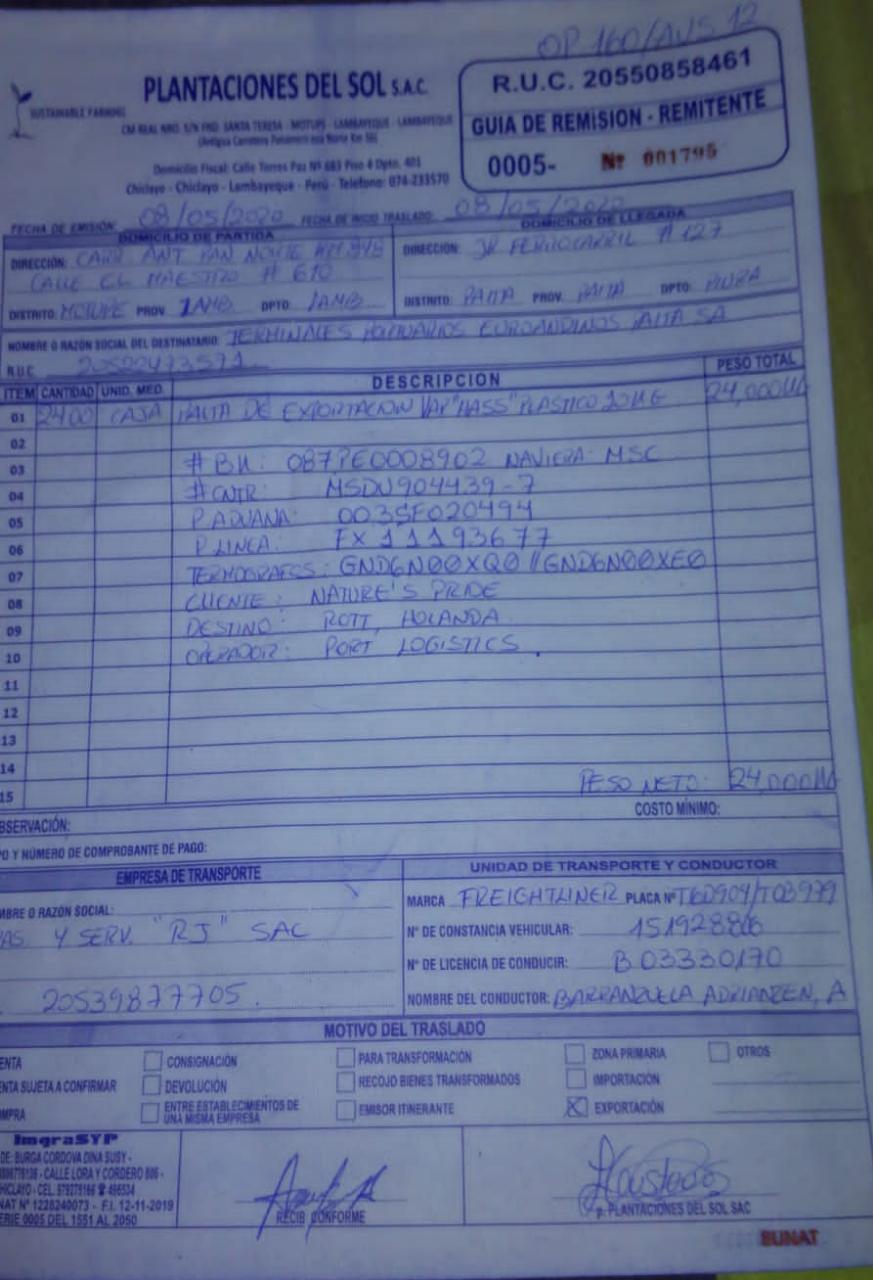 OP 160/AVS 12
PLANTACIONES DEL SOL S.A.C.
SUSTAINABLE FARMING
CM REAL NRO. S/N FND. SANTA TERESA - MOTUPE - LAMBAYEQUE - LAMBAYEQUE
(Antigua Carretera Panamericana Norte Km
Domicilio Fiscal: Calle Torres Paz Nº 683 Piso 4 Dpto. 401
Chiclayo - Chiclayo - Lambayeque - Perú - Telefono: 074-233570
R.U.C. 20550858461
GUIA DE REMISION - REMITENTE
0005- Nº 001795
FECHA DE EMISIÓN: 08/05/2020 FECHA DE INICIO TRASLADO: 08/05/2020
DOMICILIO DE PARTIDA
DIRECCIÓN: CARR ANT PAN NORTE
CALLE EL MAESTRO # 610
DISTRITO: MOTUPE PROV LAMB DPTO: LAMB
DOMICILIO DE LLEGADA
DIRECCIÓN: JR FERROCARRIL # 127
DISTRITO: PAITA PROV. PAITA DPTO: PIURA
NOMBRE O RAZÓN SOCIAL DEL DESTINATARIO: TERMINALES PORTUARIOS EUROANDINOS PAITA SA
R.U.C. 20522473571
ITEM CANTIDAD UNID. MED. DESCRIPCION PESO TOTAL
01 2400 CAJA PALTA DE EXPORTACION VAR "HASS" PLASTICO 10KG 24,000KG
02
03 # BK: 087PE0008902 NAVIERA: MSC
04 # CNTR: MSDU904439-7
05 P. ADUANA: 003SF020494
06 P. LINEA: FX11193677
07 TERMOGRAFOS: GND6N00XQ0 // GND6N00XE0
08 CLIENTE: NATURE'S PRIDE
09 DESTINO: ROTT, HOLANDA
10 OPERADOR: PORT LOGISTICS.
11
12
13
14
15 PESO NETO: 24,000KG
BSERVACIÓN: COSTO MÍNIMO:
PO Y NÚMERO DE COMPROBANTE DE PAGO:
EMPRESA DE TRANSPORTE
MBRE O RAZÓN SOCIAL:
Y SERV. "RJ" SAC
20539877705.
UNIDAD DE TRANSPORTE Y CONDUCTOR
MARCA FREIGHTLINER PLACA Nº
Nº DE CONSTANCIA VEHICULAR: 151928806
Nº DE LICENCIA DE CONDUCIR: B 03330170
NOMBRE DEL CONDUCTOR: BARRANZUELA ADRIANZEN, A
MOTIVO DEL TRASLADO
ENTA CONSIGNACIÓN PARA TRANSFORMACIÓN ZONA PRIMARIA OTROS
ENTA SUJETA A CONFIRMAR DEVOLUCIÓN RECOJO BIENES TRANSFORMADOS IMPORTACIÓN
MPRA ENTRE ESTABLECIMIENTOS DE UNA MISMA EMPRESA EMISOR ITINERANTE X EXPORTACIÓN
ImgraSYP
DE: BURGA CORDOVA DINA SUSY -
CALLE LORA Y CORDERO 806 -
HICLAYO - CEL.
NAT Nº 1228240073 - F.I. 12-11-2019
ERIE 0005 DEL 1551 AL 2050
RECIBI CONFORME
p. PLANTACIONES DEL SOL SAC
SUNAT